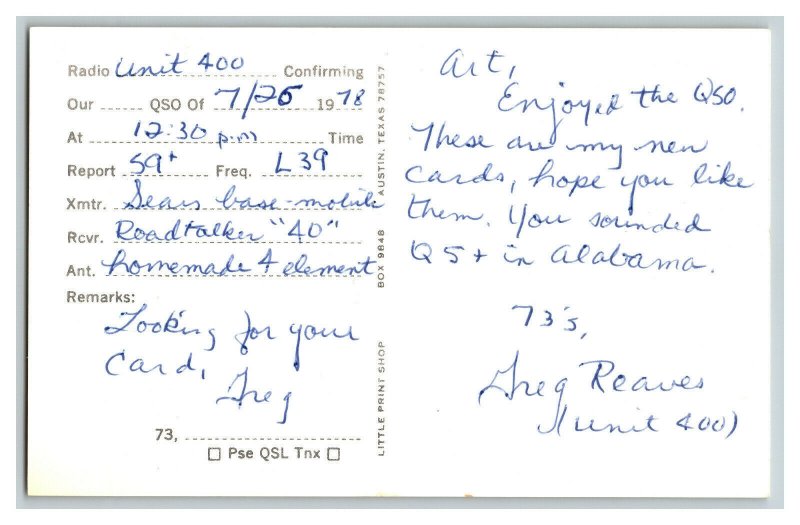 Radio Unit 400 Confirming
Our QSO Of 7/25 1978
At 12:30 p.m Time
Report 59+ Freq. L39
Xmtr. Sears base-mobile
Rcvr. Roadtalker "40"
Ant. homemade 4 element
Remarks:
Looking for your
Card,
Greg
73,
□ Pse QSL Tnx □
LITTLE PRINT SHOP BOX 9848 AUSTIN, TEXAS 78757
Art,
Enjoyed the QSO.
These are my new
cards, hope you like
them. You sounded
Q5+ in Alabama.
73's,
Greg Reaves
(unit 400)